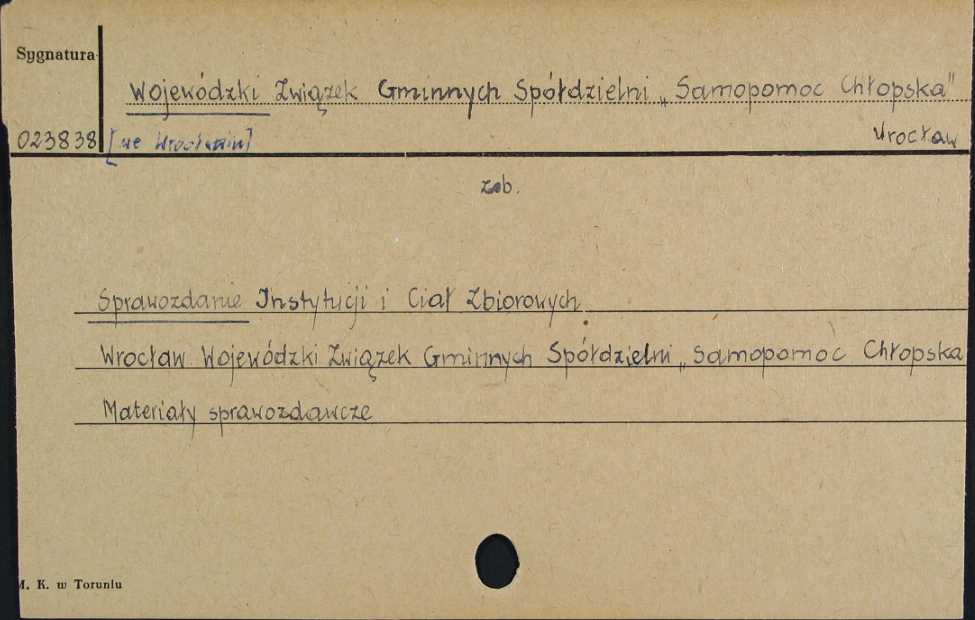 Sygnatura
Wojewódzki Związek Gminnych Spółdzielni „Samopomoc Chłopska"
023838 [we Wrocławiu] Wrocław
zob.
Sprawozdanie Instytucji i Ciał Zbiorowych.
Wrocław Wojewódzki Związek Gminnych Spółdzielni „Samopomoc Chłopska
Materiały sprawozdawcze
M. K. w Toruniu